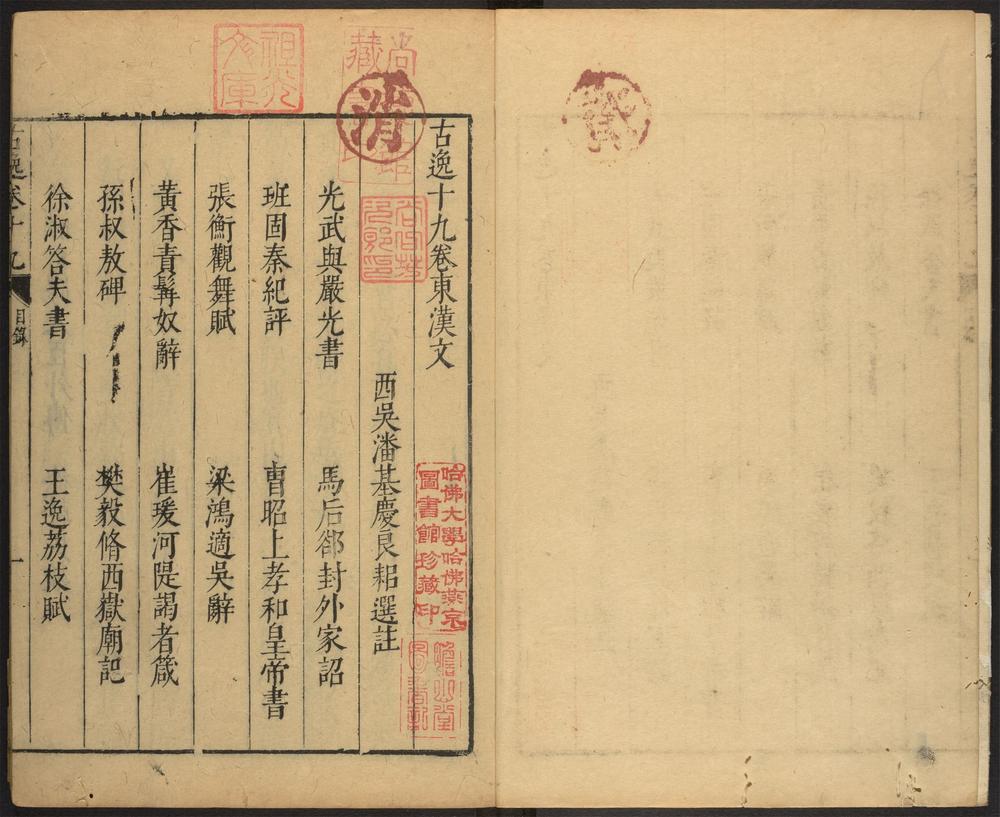 古逸十九卷東漢文
西吳潘基慶良耜選註
光武與嚴光書 馬后郤封外家詔
班固秦紀評 曹昭上孝和皇帝書
張衡觀舞賦 梁鴻適吳辭
黃香責髯奴辭 崔瑗河隄謁者箴
孫叔敖碑 樊毅脩西嶽廟記
徐淑答夫書 王逸荔枝賦
古逸卷十九 目錄 一
哈佛大學哈佛燕京
圖書館珍藏印
消